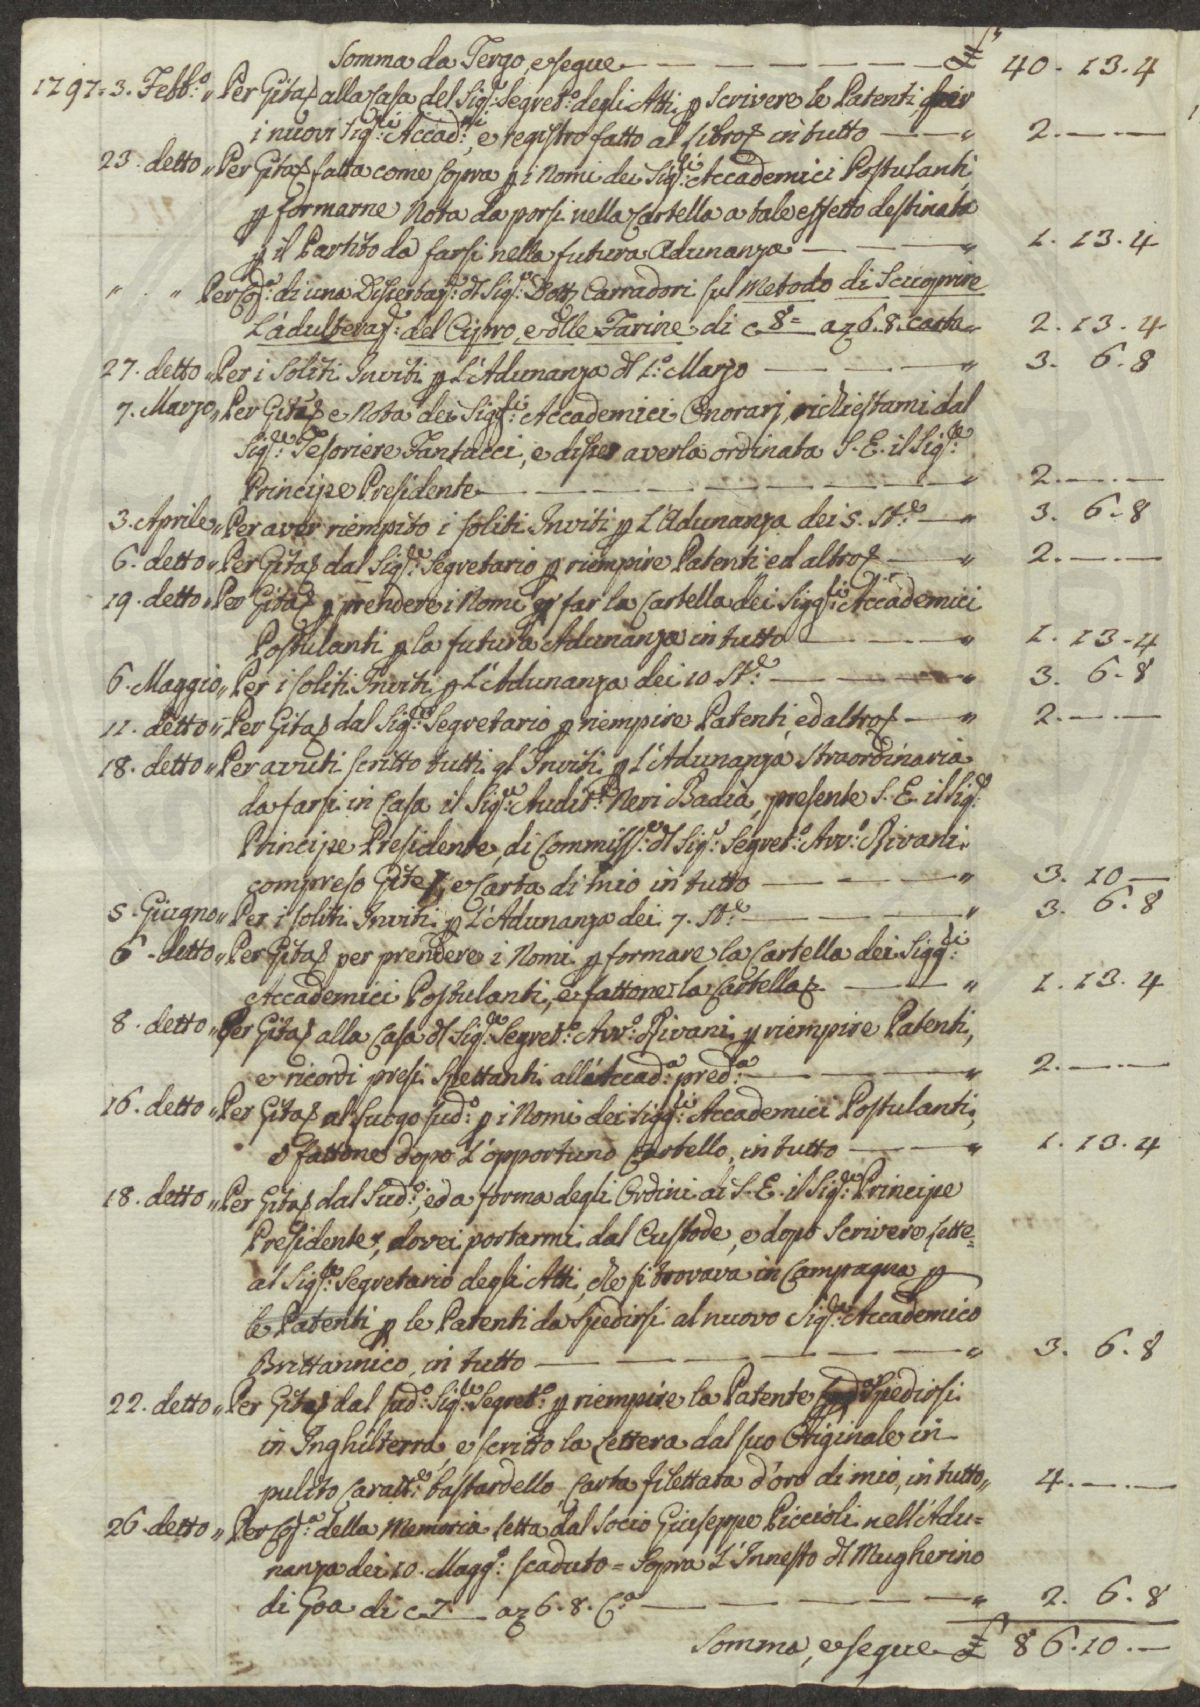 Somma da Tergo, e segue — — — — — £ 40. 13. 4
1797. 3. Febb.º „ Per Gita alla Casa del Sig.r Segret.º degli Atti p scrivere le Patenti
i nuovi Sig.ri Accad.ci, e registro fatto al libro in tutto — — „ 2. — —
23. detto „ Per Gita fatta come sopra p i Nomi dei Sig.ri Accademici Postulanti,
p formarne Nota da porsi nella Cartella a tale effetto destinata
p il Partito da farsi nella futura Adunanza — — — „ 1. 13. 4
„ „ Per Cop.a di una Disertaz.e d Sig.r Dott Carradori sul Metodo di Scuoprire
L'adulteraz.e del Cipro, e dlle Farine di c. 8 = a z 6. 8. carta „ 2. 13. 4
27. detto „ Per i soliti Inviti p L'Adunanza d P.º Marzo — — — „ 3. 6. 8
7. Marzo „ Per Gita e Nota dei Sigg.ri Accademici Onorarj, richiestami dal
Sig.re Tesoriere Fantacci, e disse averla ordinata S. E. il Sig.re
Principe Presidente — — — — — — „ 2. — —
3. Aprile „ Per aver riempito i soliti Inviti p L'Adunanza dei 5. St.e — „ 3. 6. 8
6. detto „ Per Gita dal Sig.re Segretario p riempire Patenti, ed altro — — „ 2. — —
19. detto „ Per Gita p prendere i Nomi p far la Cartella dei Sigg.ri Accademici
Postulanti p la futura Adunanza in tutto — — — „ 1. 13. 4
6. Maggio „ Per i soliti Inviti p L'Adunanza dei 10 St.e — — — „ 3. 6. 8
11. detto „ Per Gita dal Sig.re Segretario p riempire Patenti, ed altro — „ 2. — —
18. detto „ Per avuti scritto tutti gl'Inviti p L'Adunanza straordinaria
da farsi in Casa il Sig.re Audit.re Neri Badia, presente S. E. il Sig.re
Principe Presidente, di Commiss.e d Sig.r Segret.º Avv.º Rivani.
compreso Gite, e Carta di mio in tutto — — — „ 3. 10 —
5. Giugno „ Per i soliti Inviti p L'Adunanza dei 7. St.e — — — „ 3. 6. 8
6 - detto „ Per Gita per prendere i Nomi p formare la Cartella dei Sigg.ri
Accademici Postulanti, e fattone la Cartella — — „ 1. 13. 4
8. detto „ Per Gita alla Casa d Sig.re Segret.º Avv.º Rivani p riempire Patenti,
e ricordi presi spettanti all'Accad.a pred.a — — — „ 2. — —
16. detto „ Per Gita al Luogo sud.º p i Nomi dei Sigg.ri Accademici Postulanti,
e fattone dopo L'opportuno Cartello, in tutto — — „ 1. 13. 4
18. detto „ Per Gita dal sud.º, ed a forma degli Ordini di S. E. il Sig.re Principe
Presidente, dovei portarmi dal Custode, e dopo scrivere lette=
al Sig.re Segretario degli Atti, che si trovava in Campagna p
le Patenti p le Patenti da spedirsi al nuovo Sig.re Accademico
Brittannico, in tutto — — — — — — „ 3. 6. 8
22. detto „ Per Gita dal sud.º Sig.re Segret.º p riempire la Patente spedirsi
in Inghilterra, e scritto la Lettera dal suo Originale in
pulito caratt.e bastardello, Carta filettata d'oro di mio, in tutto „ 4. — —
26. detto „ Per Cop.a della Memoria letta dal Socio Giuseppe Piccioli nell'Adu=
nanza dei 10. Magg.º scaduto = Sopra L'Innesto d Mugherino
di Goa di c. 7. — a z 6. 8. C.a — — — — „ 2. 6. 8
Somma, e segue £ 86. 10. —